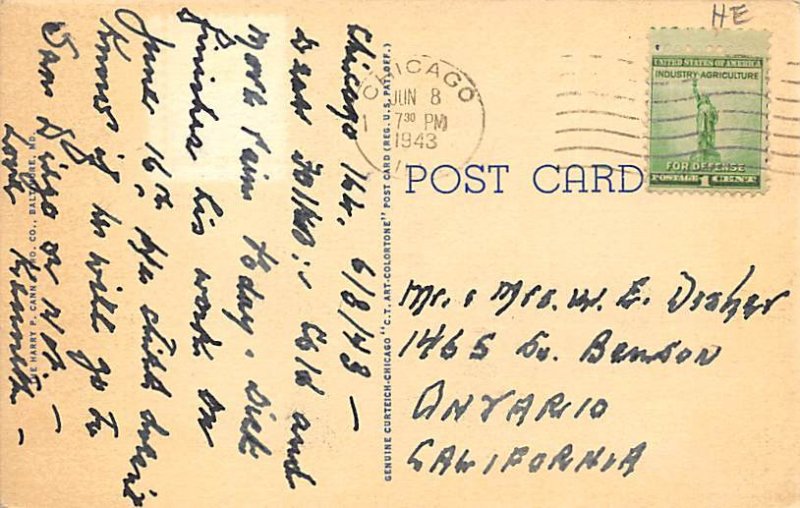 HE
CHICAGO
JUN 8
7 30 PM
1943
UNITED STATES OF AMERICA
INDUSTRY AGRICULTURE
FOR DEFENSE
POSTAGE 1 CENT
POST CARD
Chicago 16th, 6/8/43 —
Dear Folks :- Cold and
more rain today. Dick
finishes his work on
June 16th. He still don't
know if he will go to
San Diego or not —
Love Kenneth —
Mr. & Mrs. W. E.
1465 So. Benson
ONTARIO
CALIFORNIA
GENUINE CURTEICH-CHICAGO "C.T. ART-COLORTONE" POST CARD (REG. U.S. PAT. OFF.)
HARRY P. CANN BRO. CO., BALTIMORE, MD.